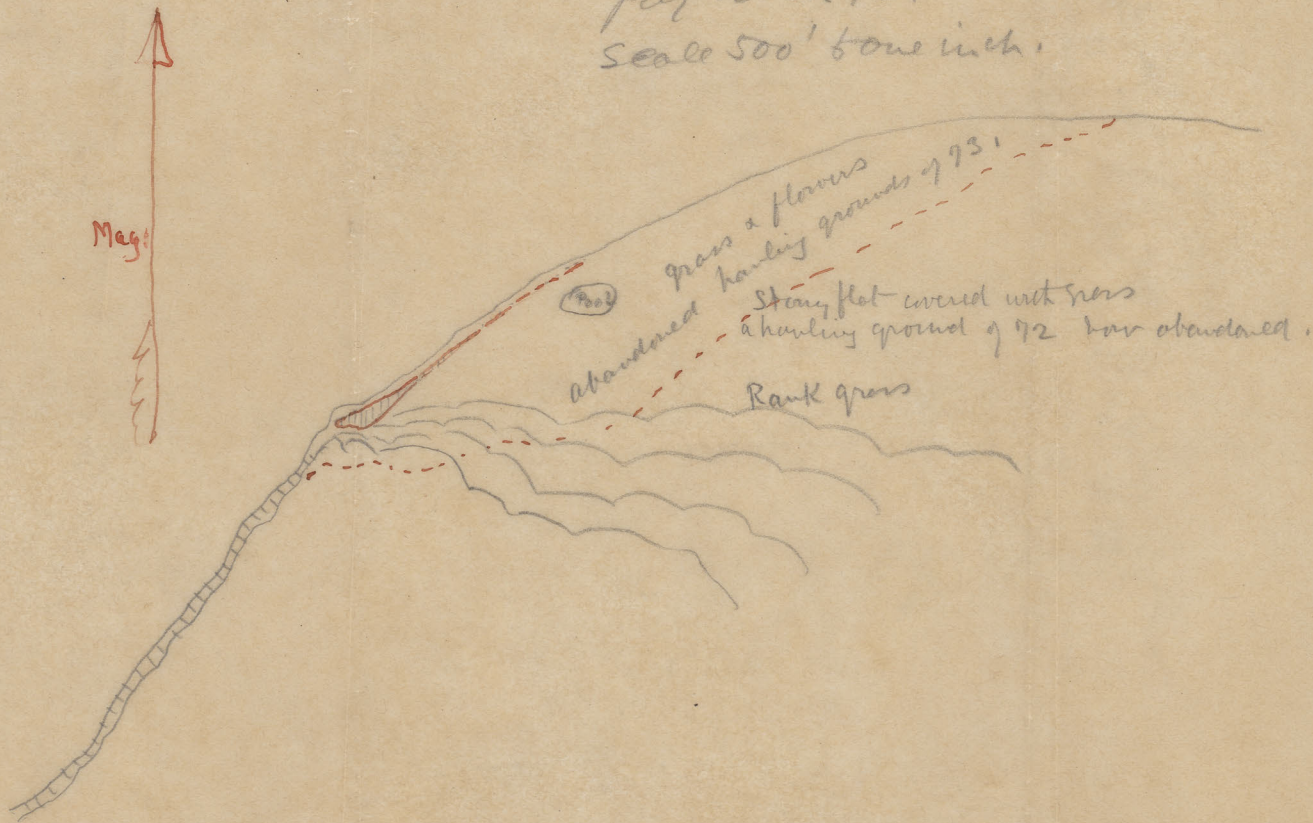 Scale 500' to one inch.
Mag:
grass & flowers
abandoned hauling grounds of 73.
Pool
Stony flat covered with grass
a hauling ground of 72 now abandoned.
Rank grass